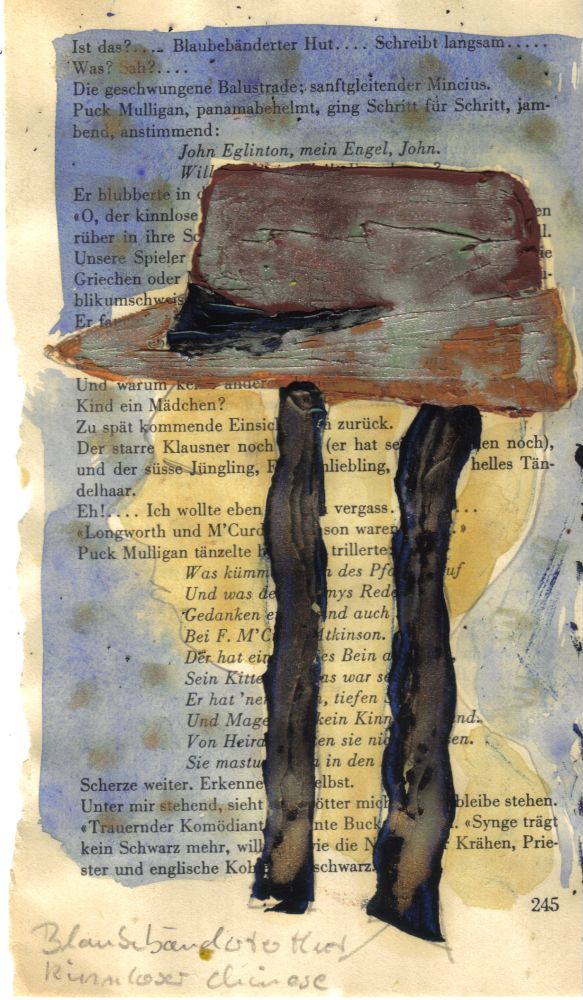 Ist das?.... Blaubebänderter Hut.... Schreibt langsam.....
Was? Sah?....
Die geschwungene Balustrade; sanftgleitender Mincius.
Puck Mulligan, panamabehelmt, ging Schritt für Schritt, jam-
bend, anstimmend:
John Eglinton, mein Engel, John.
Er blubberte in
«O, der kinnlose en
rüber in ihre Sc ll.
Unsere Spieler ie
Griechen oder
blikumschweis
Er
Und warum
Kind ein Mädchen?
Zu spät kommende Einsic zurück.
Der starre Klausner noch (er hat se en noch),
und der süsse Jüngling, liebling, helles Tän-
delhaar.
Eh!.... Ich wollte eben vergass.
«Longworth und M'Curd son waren »
Puck Mulligan tänzelte trillerte:
Was kümm n des Pfa uf
Und was de mys Rede
Gedanken e nd auch
Bei F. M'C Atkinson.
Der hat ein es Bein a
Sein Kitte as war se
Er hat 'ne , tiefen
Und Mage kein Kinn nd.
Von Heira en sie ni sen.
Sie mastu in den
Scherze weiter. Erkenne elbst.
Unter mir stehend, sieht ötter mich bleibe stehen.
«Trauernder Komödiant nte Buck . «Synge trägt
kein Schwarz mehr, will wie die N Krähen, Prie-
ster und englische Koh schwarz.
245
Blaubebänderter Hut
Kinnloser Chinese